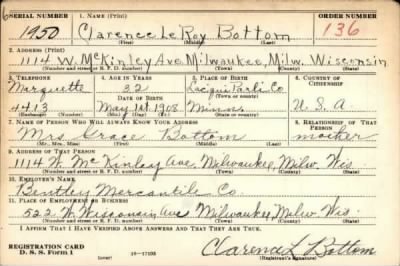 SERIAL NUMBER 1. NAME (Print) ORDER NUMBER
1950 Clarence LeRoy Bottom 136
(First) (Middle) (Last)
2. ADDRESS (Print)
1114 W. McKinley Ave. Milwaukee, Milw. Wisconsin
(Number and street or R. F. D. number) (Town) (County) (State)
3. TELEPHONE 4. AGE IN YEARS 5. PLACE OF BIRTH 6. COUNTRY OF CITIZENSHIP
Marquette 32 Lacqui Parli Co.
DATE OF BIRTH
4413 May 1st 1908 Minn. U. S. A.
(Exchange) (Number) (Mo.) (Day) (Yr.) (State or country)
7. NAME OF PERSON WHO WILL ALWAYS KNOW YOUR ADDRESS 8. RELATIONSHIP OF THAT PERSON
Mrs. Grace Bottom mother
(Mr., Mrs., Miss) (First) (Middle) (Last)
9. ADDRESS OF THAT PERSON
1114 W. McKinley Ave. Milwaukee, Milw. Wis.
(Number and street or R. F. D. number) (Town) (County) (State)
10. EMPLOYER'S NAME
Bentley Mercantile Co.
11. PLACE OF EMPLOYMENT OR BUSINESS
522 W. Wisconsin Ave Milwaukee, Milw. Wis.
(Number and street or R. F. D. number) (Town) (County) (State)
I AFFIRM THAT I HAVE VERIFIED ABOVE ANSWERS AND THAT THEY ARE TRUE.
REGISTRATION CARD
D. S. S. Form 1 16-17105 Clarence L Bottom
(Registrant's signature)